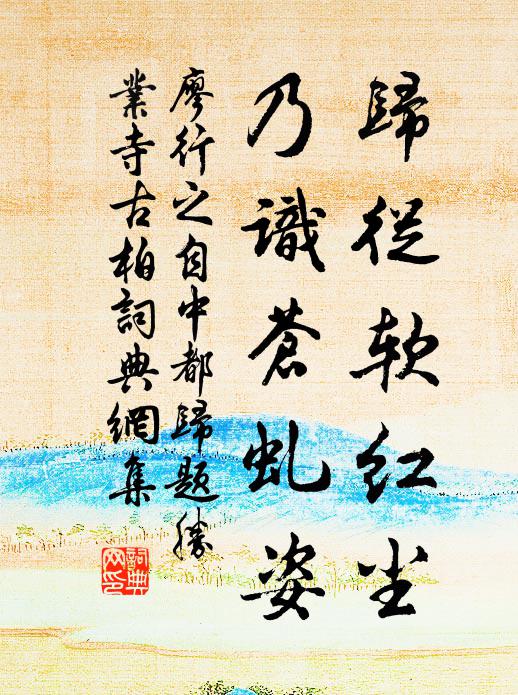 歸從軟紅尘
乃識蒼虬姿
廖行之自中都歸題勝
業寺古柏詞典網集
詞典
网印